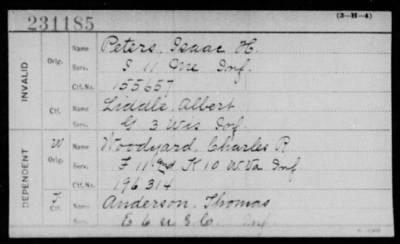 231185
(3-H-4)
INVALID
DEPENDENT
Orig. Name Peters, Isaac H.
Serv. I 11 Me Inf.
Ctf. No. 155657
Ctf. Name Liddle, Albert
Serv. G 3 Wis Inf.
W Orig. Name Woodyard, Charles R
Serv. F 11 and K 10 W.Va Inf.
Ctf. No. 196314
F Ctf. Name Anderson, Thomas
Serv. E 6 U.S.C. Inf.